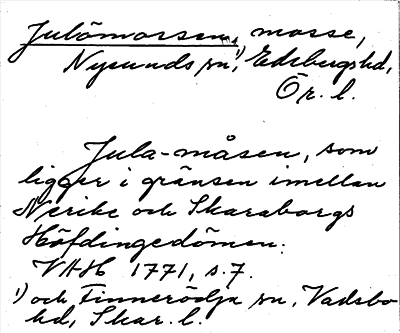 Julömossen, mosse,
Nysunds sn,¹) Edsbergs hd,
Ör. l.
Jula-måsen, som
ligger i gränsen imellan
Nerike och Skaraborgs
Höfdingedömen.
VAH 1771, s. 7.
¹) och Finnerödja sn, Vadsbo
hd, Skar. l.